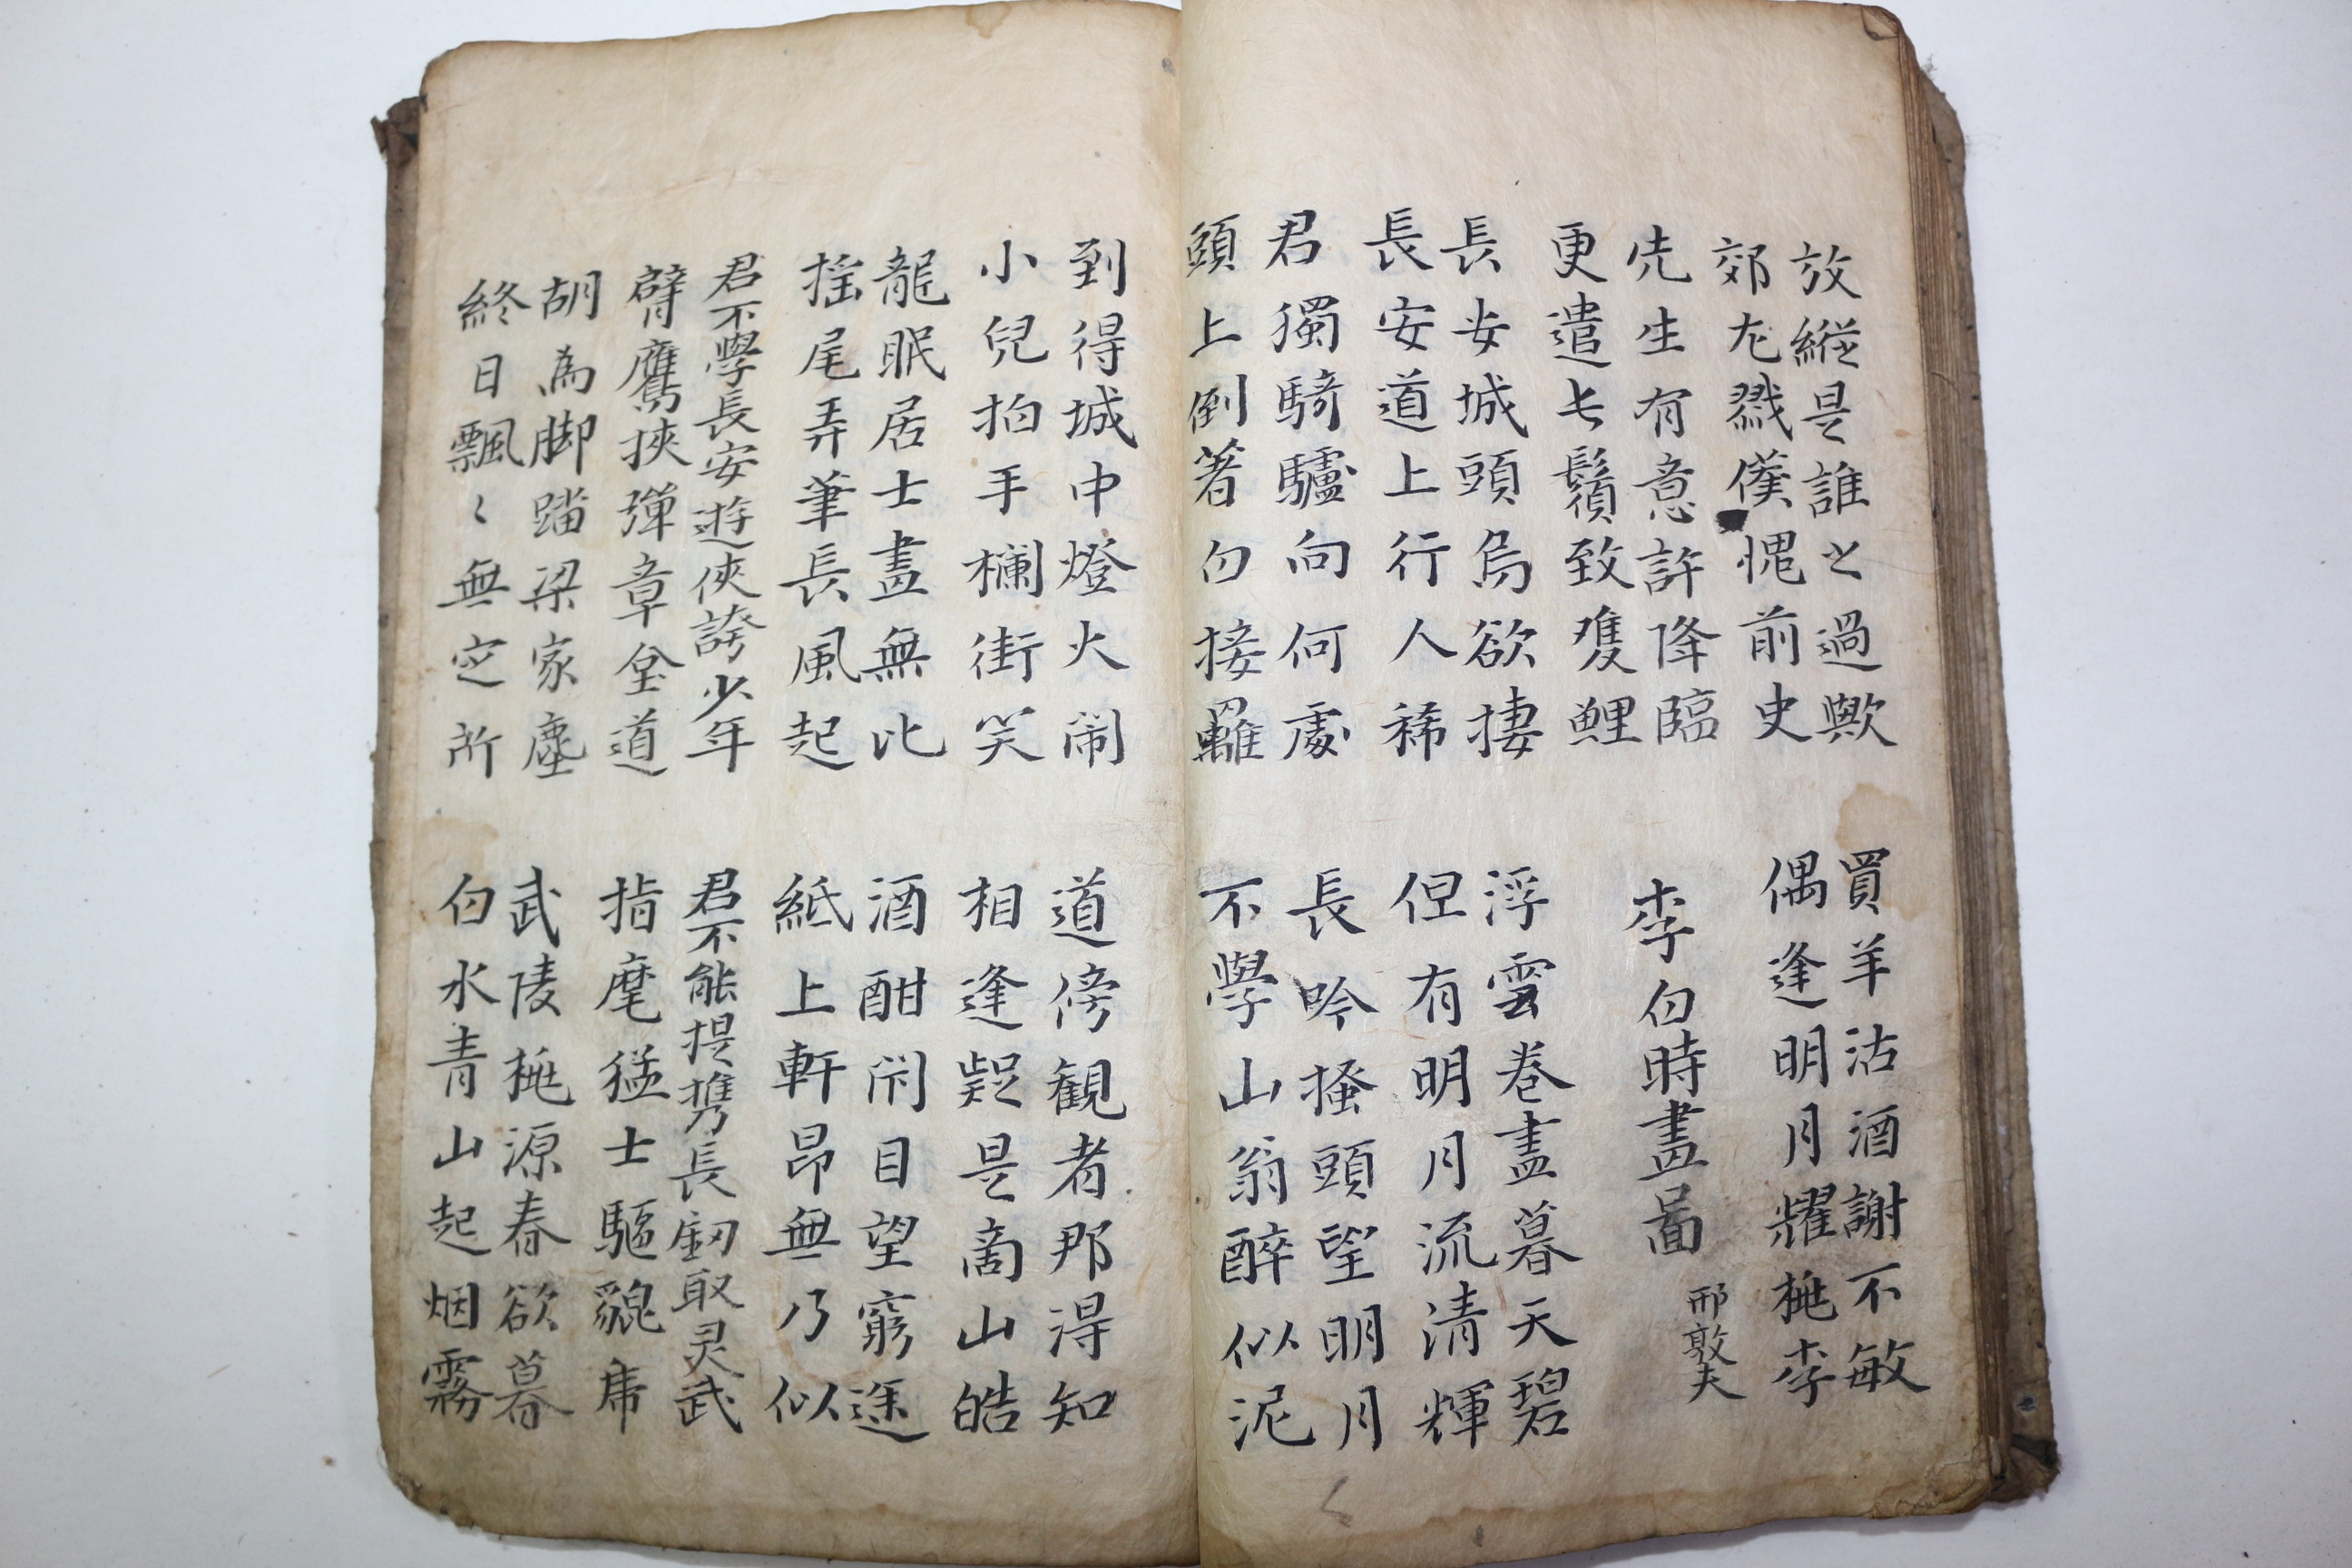 放縱是誰之過歟
郊尤戮僕愧前史
買羊沽酒謝不敏
偶逢明月耀桃李
先生有意許降臨
更遣長鬚致雙鯉
李白時畫啚 邢敦夫
長安城頭烏欲捿
長安道上行人稀
浮雲巻盡暮天碧
但有明月流清輝
君獨騎驢向何處
頭上倒著白接䍦
長吟搔頭望明月
不學山翁醉似泥
到得城中燈火閙
小兒拍手欄街笑
道傍観者那得知
相逢疑是商山皓
龍眠居士畫無比
揺尾弄筆長風起
酒酣閇目望窮途
紙上軒昂無乃似
君不學長安遊俠誇少年
臂鷹挾彈章坮道
君不能提携長劒取灵武
指麾猛士驅貔虎
胡為脚踏梁家塵
終日飄〻無定所
武陵桃源春欲暮
白水青山起烟霧